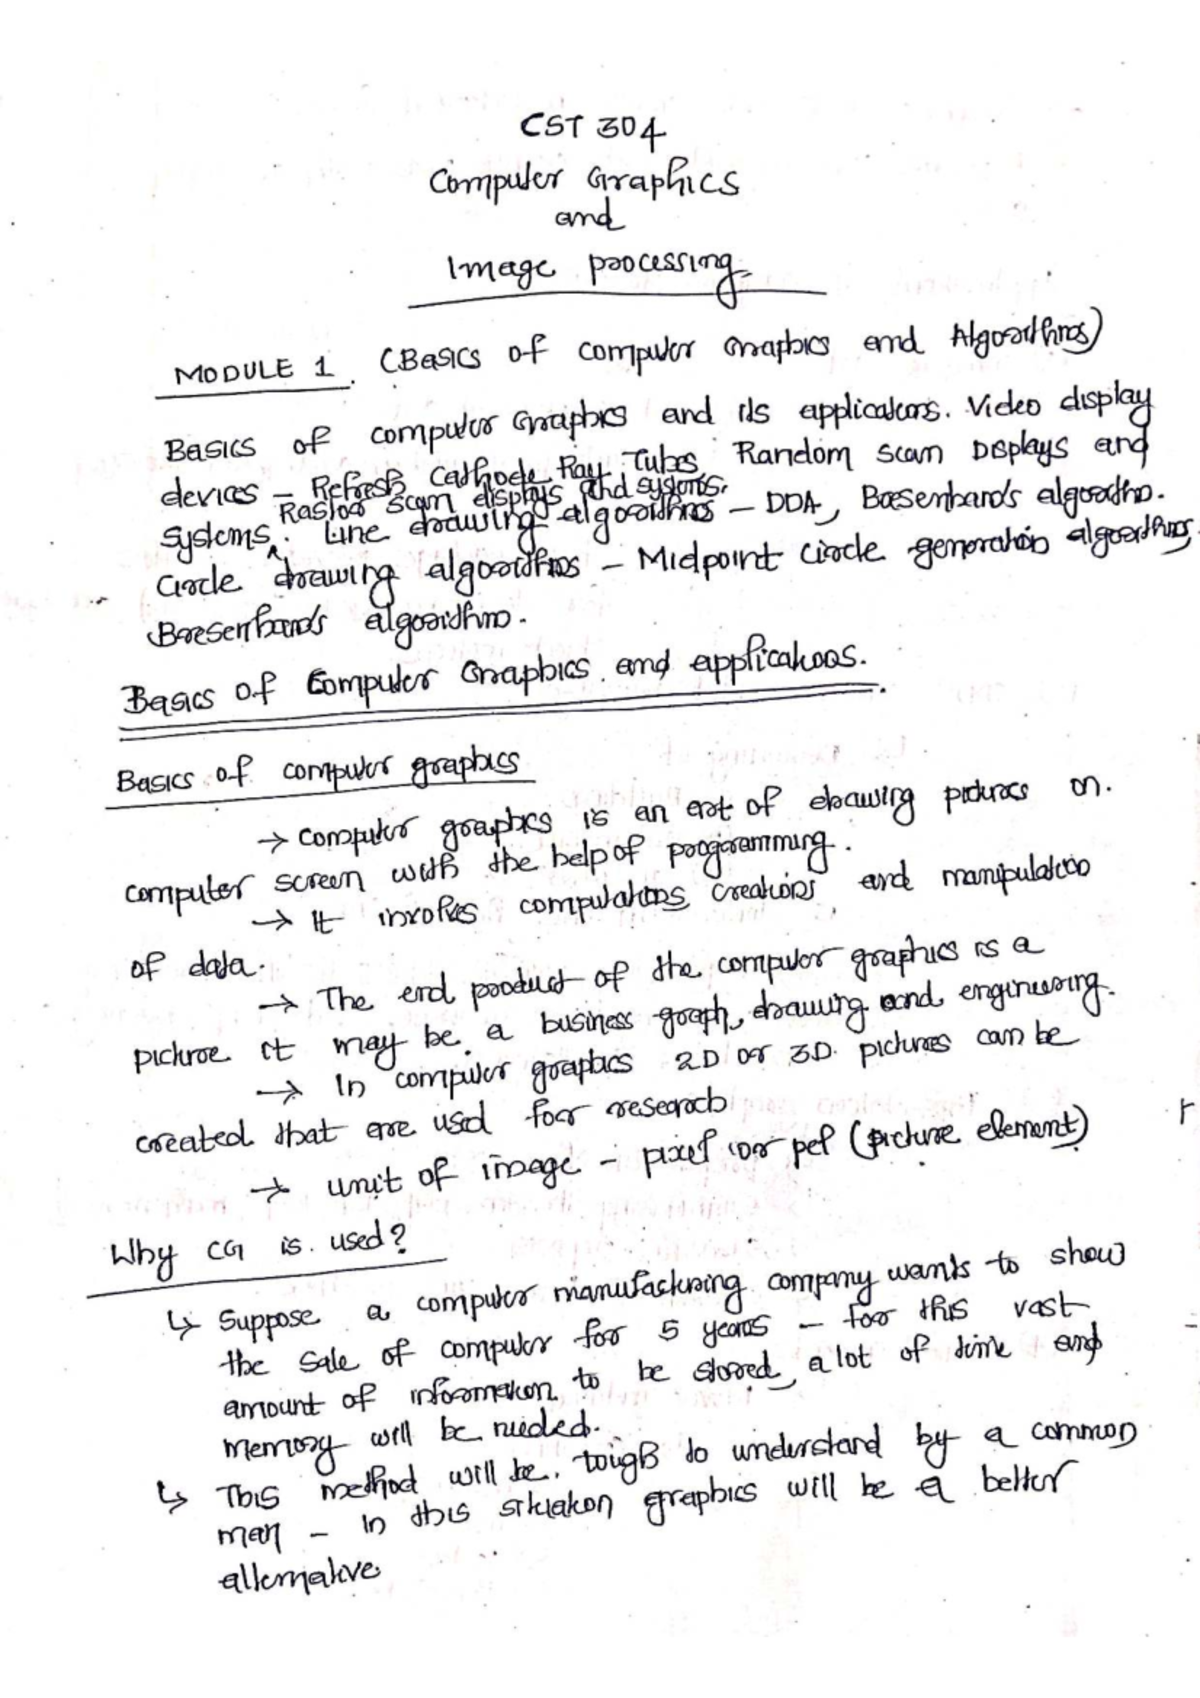 CST 304
Computer Graphics
and
Image processing
MODULE 1. (Basics of computer Graphics and Algorithms)
Basics of computer Graphics and its applications. Video display
devices – Refresh Cathode Ray Tubes, Random scan Displays and
Raster scan displays and systems.
systems. Line drawing algorithms – DDA, Bresenham's algorithm.
Circle drawing algorithms – Midpoint circle generation algorithms,
Bresenham's algorithm.
Basics of Computer Graphics and applications.
Basics of computer graphics
→ Computer graphics is an art of drawing pictures on.
computer screen with the help of programming.
→ It involves computations, creations and manipulation
of data.
→ The end product of the computer graphics is a
picture it may be a business graph, drawing and engineering.
→ In computer graphics 2D or 3D pictures can be
created that are used for research
→ unit of image – pixel or pel (picture element)
Why CG is used?
↳ Suppose a computer manufacturing company wants to show
the sale of computer for 5 years – for this vast
amount of information to be stored, a lot of time and
memory will be needed.
↳ This method will be tough to understand by a common
man – in this situation graphics will be a better
alternative